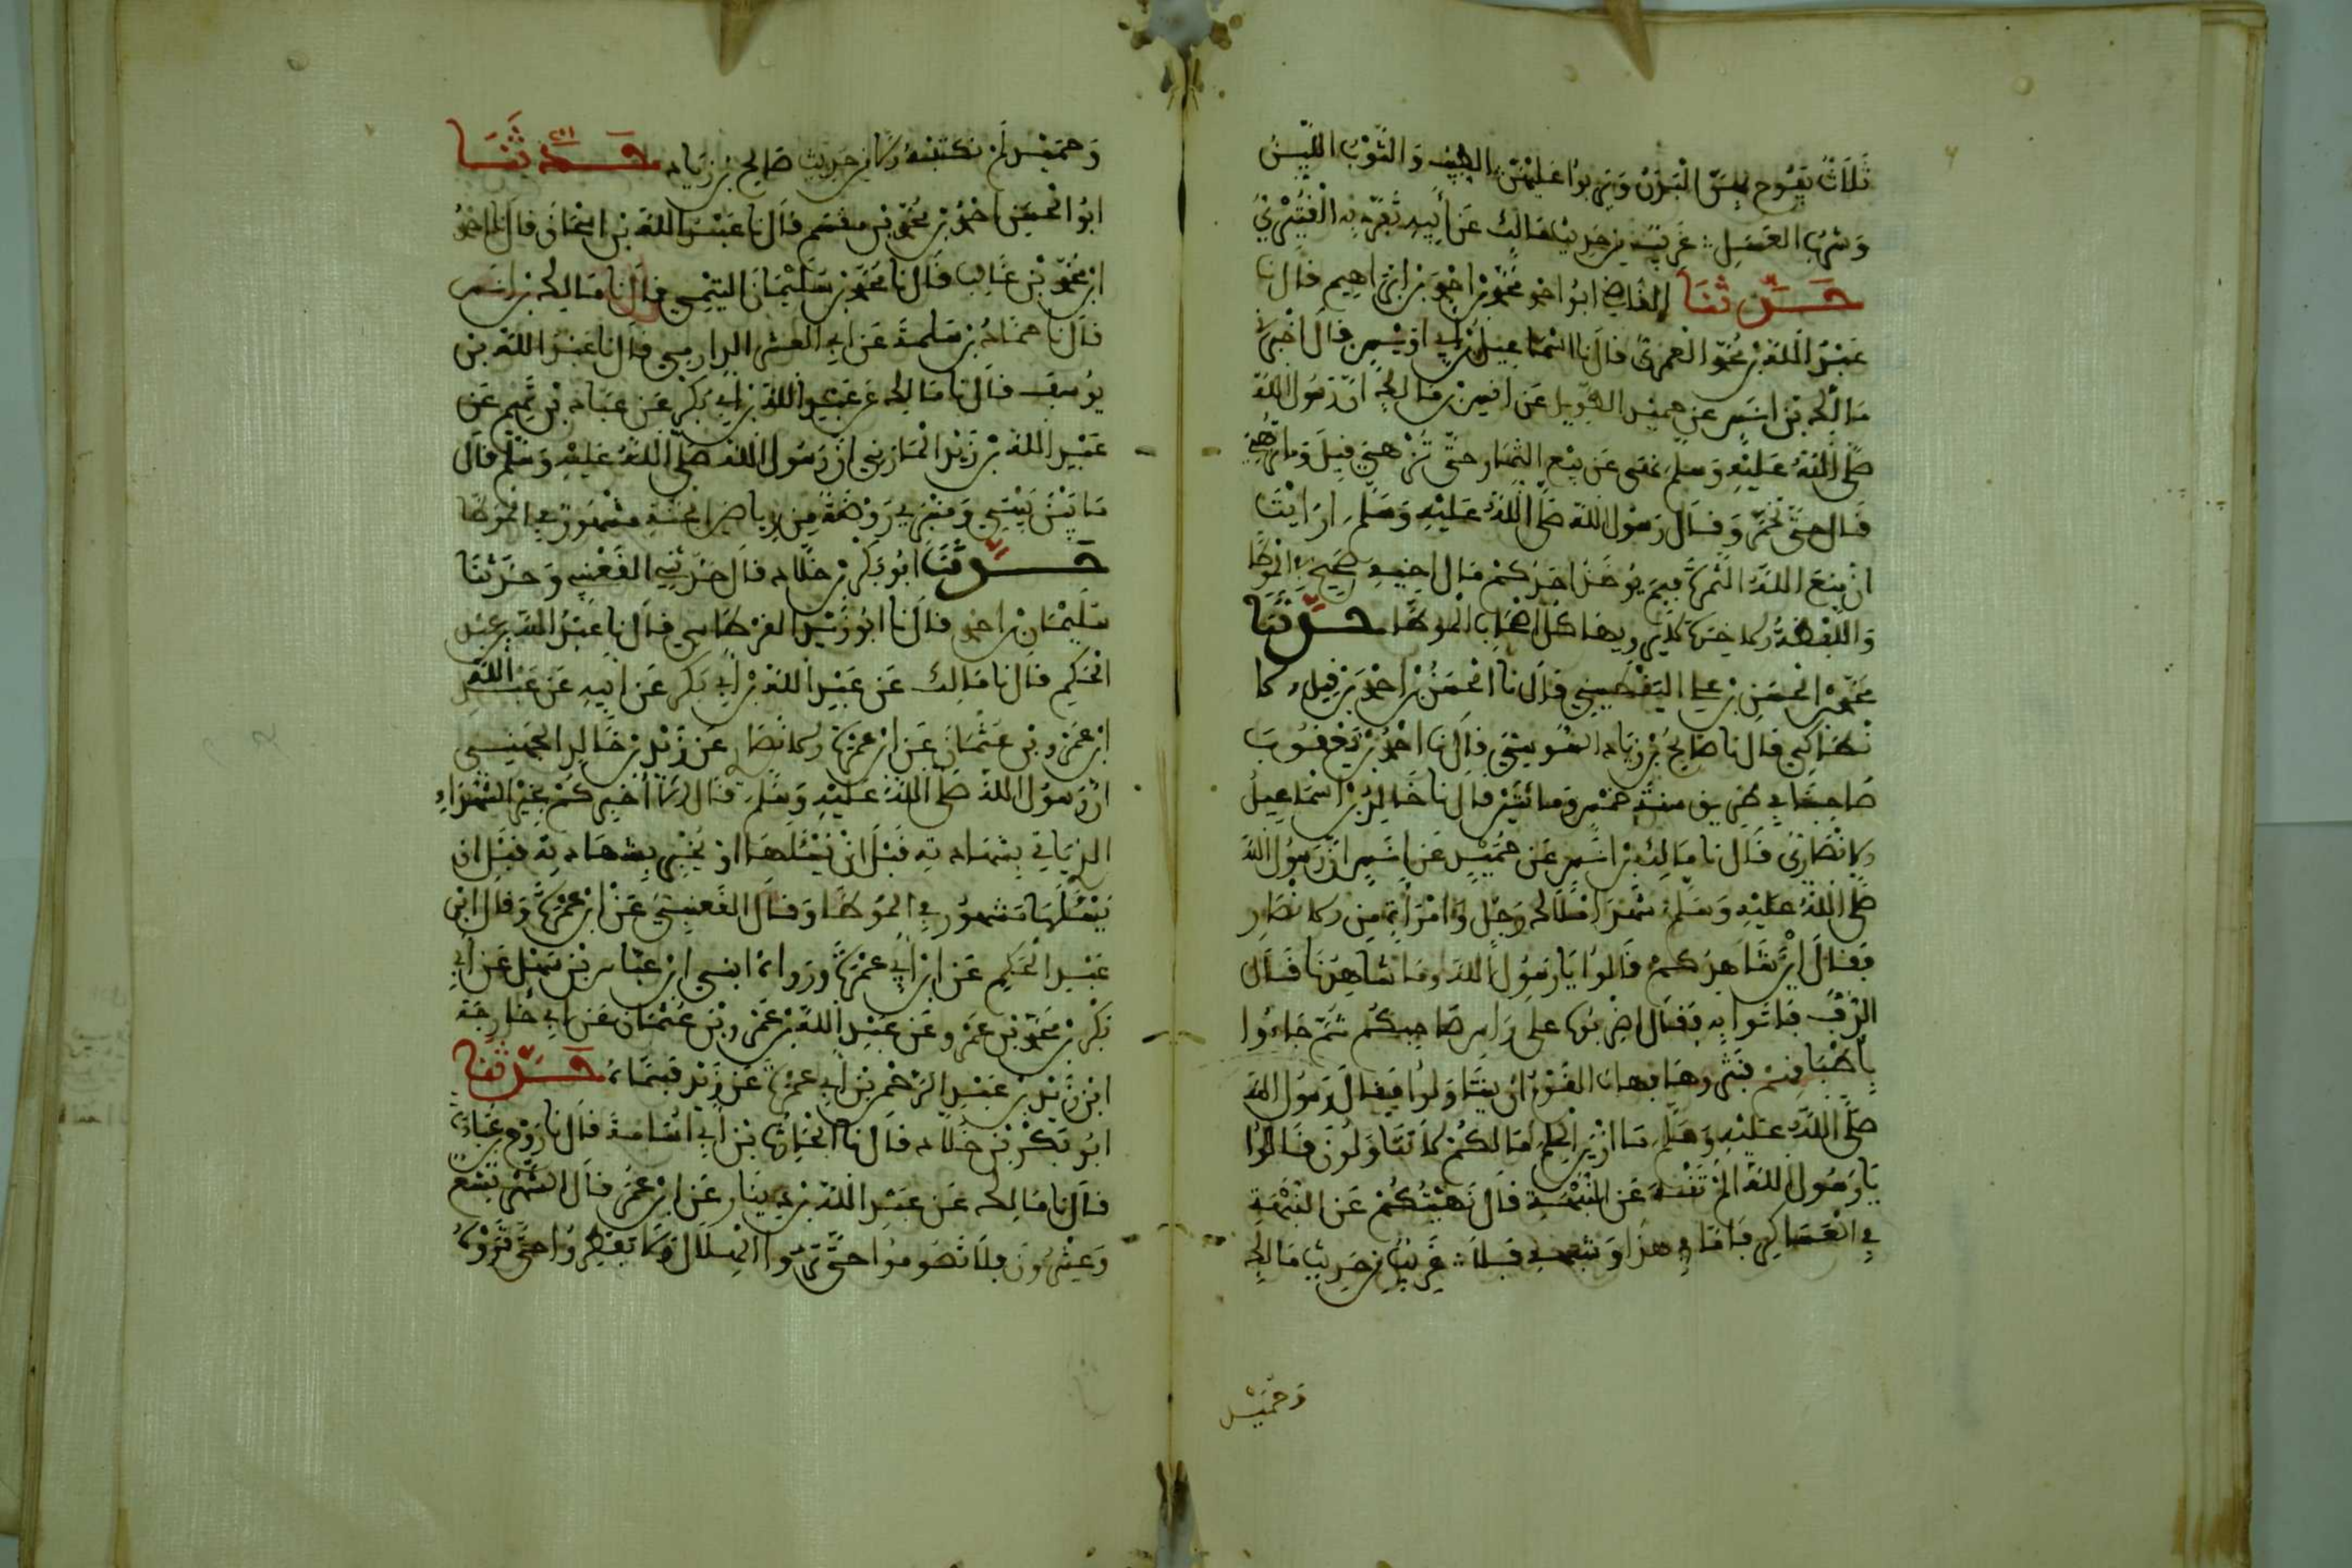 ثلاث يفرح بهن البدن ويربوا عليهن الطيب والثوب اللين
وشرب العسل غريب من حديث مالك عن أبيه تفرد به
حدثنا القاضي ابو احمد محمد بن احمد بن ابراهيم قال نا
عبد الله بن محمد العمري قال نا اسماعيل بن ابي اويس قال اخبرني
مالك بن انس عن حميد الطويل عن انس بن مالك ان رسول الله
صلى الله عليه وسلم نهى عن بيع الثمار حتى تزهي قيل وما تزهي
قال حتى تحمر وقال رسول الله صلى الله عليه وسلم ارايت
ان منع الله الثمرة فبم يوخذ احدكم مال اخيه صحيح في الموطا
واللفظة الاخيرة لم يرويها كل اصحاب الموطا حدثنا
محمد بن الحسن بن علي اليقطيني قال نا الحسن بن احمد بن فيل الا
نطاكي قال نا صالح بن زياد السوسي قال نا احمد بن يعقوب
صاحبنا في طريق سنة خمس ومائتين قال نا خالد بن اسماعيل
الانصاري قال نا مالك بن انس عن حميد عن انس ان رسول الله
صلى الله عليه وسلم شهد املاك رجل وامراة من الانصار
فقال اين شاهدكم قالوا يا رسول الله وما شاهدنا قال
الدف فاتوا به فقال اضربوا على راس صاحبكم ثم جاءوا
باطباقهم فنثروها فهاب القوم ان يتناولوا فقال رسول الله
صلى الله عليه وسلم ما ازين الحلم مالكم لا تتناولون قالوا
يا رسول الله الم تنه عن النهبة قال نهيتكم عن النهبة
في العساكر فاما في هذا وشبهه فلا غريب من حديث مالك
وحميد
وحميد لم نكتبه الا من حديث صالح بن زياد حدثنا
ابو الحسن احمد بن محمد بن مقسم قال نا عبد الله بن اسحاق قال نا احمد
ابن محمد بن غالب قال نا محمد بن سليمان التيمي قال نا مالك بن انس
قال نا حماد بن سلمة عن ابي العشراء الدارمي قال نا عبد الله بن
يوسف قال نا مالك عن عبد الله بن ابي بكر عن عباد بن تميم عن
عبد الله بن زيد المازني ان رسول الله صلى الله عليه وسلم قال
ما بين بيتي ومنبري روضة من رياض الجنة مشهور في الموطا
حدثنا ابو بكر بن خلاد قال حدثنيه القعنبي وحدثنا
سليمان بن احمد قال نا ابو زيد القرطاسي قال نا عبد الله بن عبد
الحكم قال نا مالك عن عبد الله بن ابي بكر عن ابيه عن عبد الله
ابن عمرو بن عثمان عن ابن عمرة الانصار عن زيد بن خالد الجهني
ان رسول الله صلى الله عليه وسلم قال الا اخبركم بخير الشهداء
الذي ياتي بشهادته قبل ان يسئلها او يخبر بشهادته قبل ان
يسئلها مشهور في الموطا وقال القعنبي عن ابن عمرة وقال ابن
عبد الحكم عن ابن ابي عمرة ورواه ابي ابن عباس بن سهل عن ابي
بكر بن محمد بن عمرو عن عبد الله بن عمرو بن عثمان عن ابي خارجة
ابن زيد بن عبد الرحمن بن ابي عمرة عن زيد فسماه حدثنا
ابو بكر بن خلاد قال نا الحارث بن ابي اسامة قال نا روح بن عبادة
قال نا مالك عن عبد الله بن دينار عن ابن عمر قال الشهر تسع
وعشرون فلا تصوموا حتى تروا الهلال ولا تفطروا حتى تروه